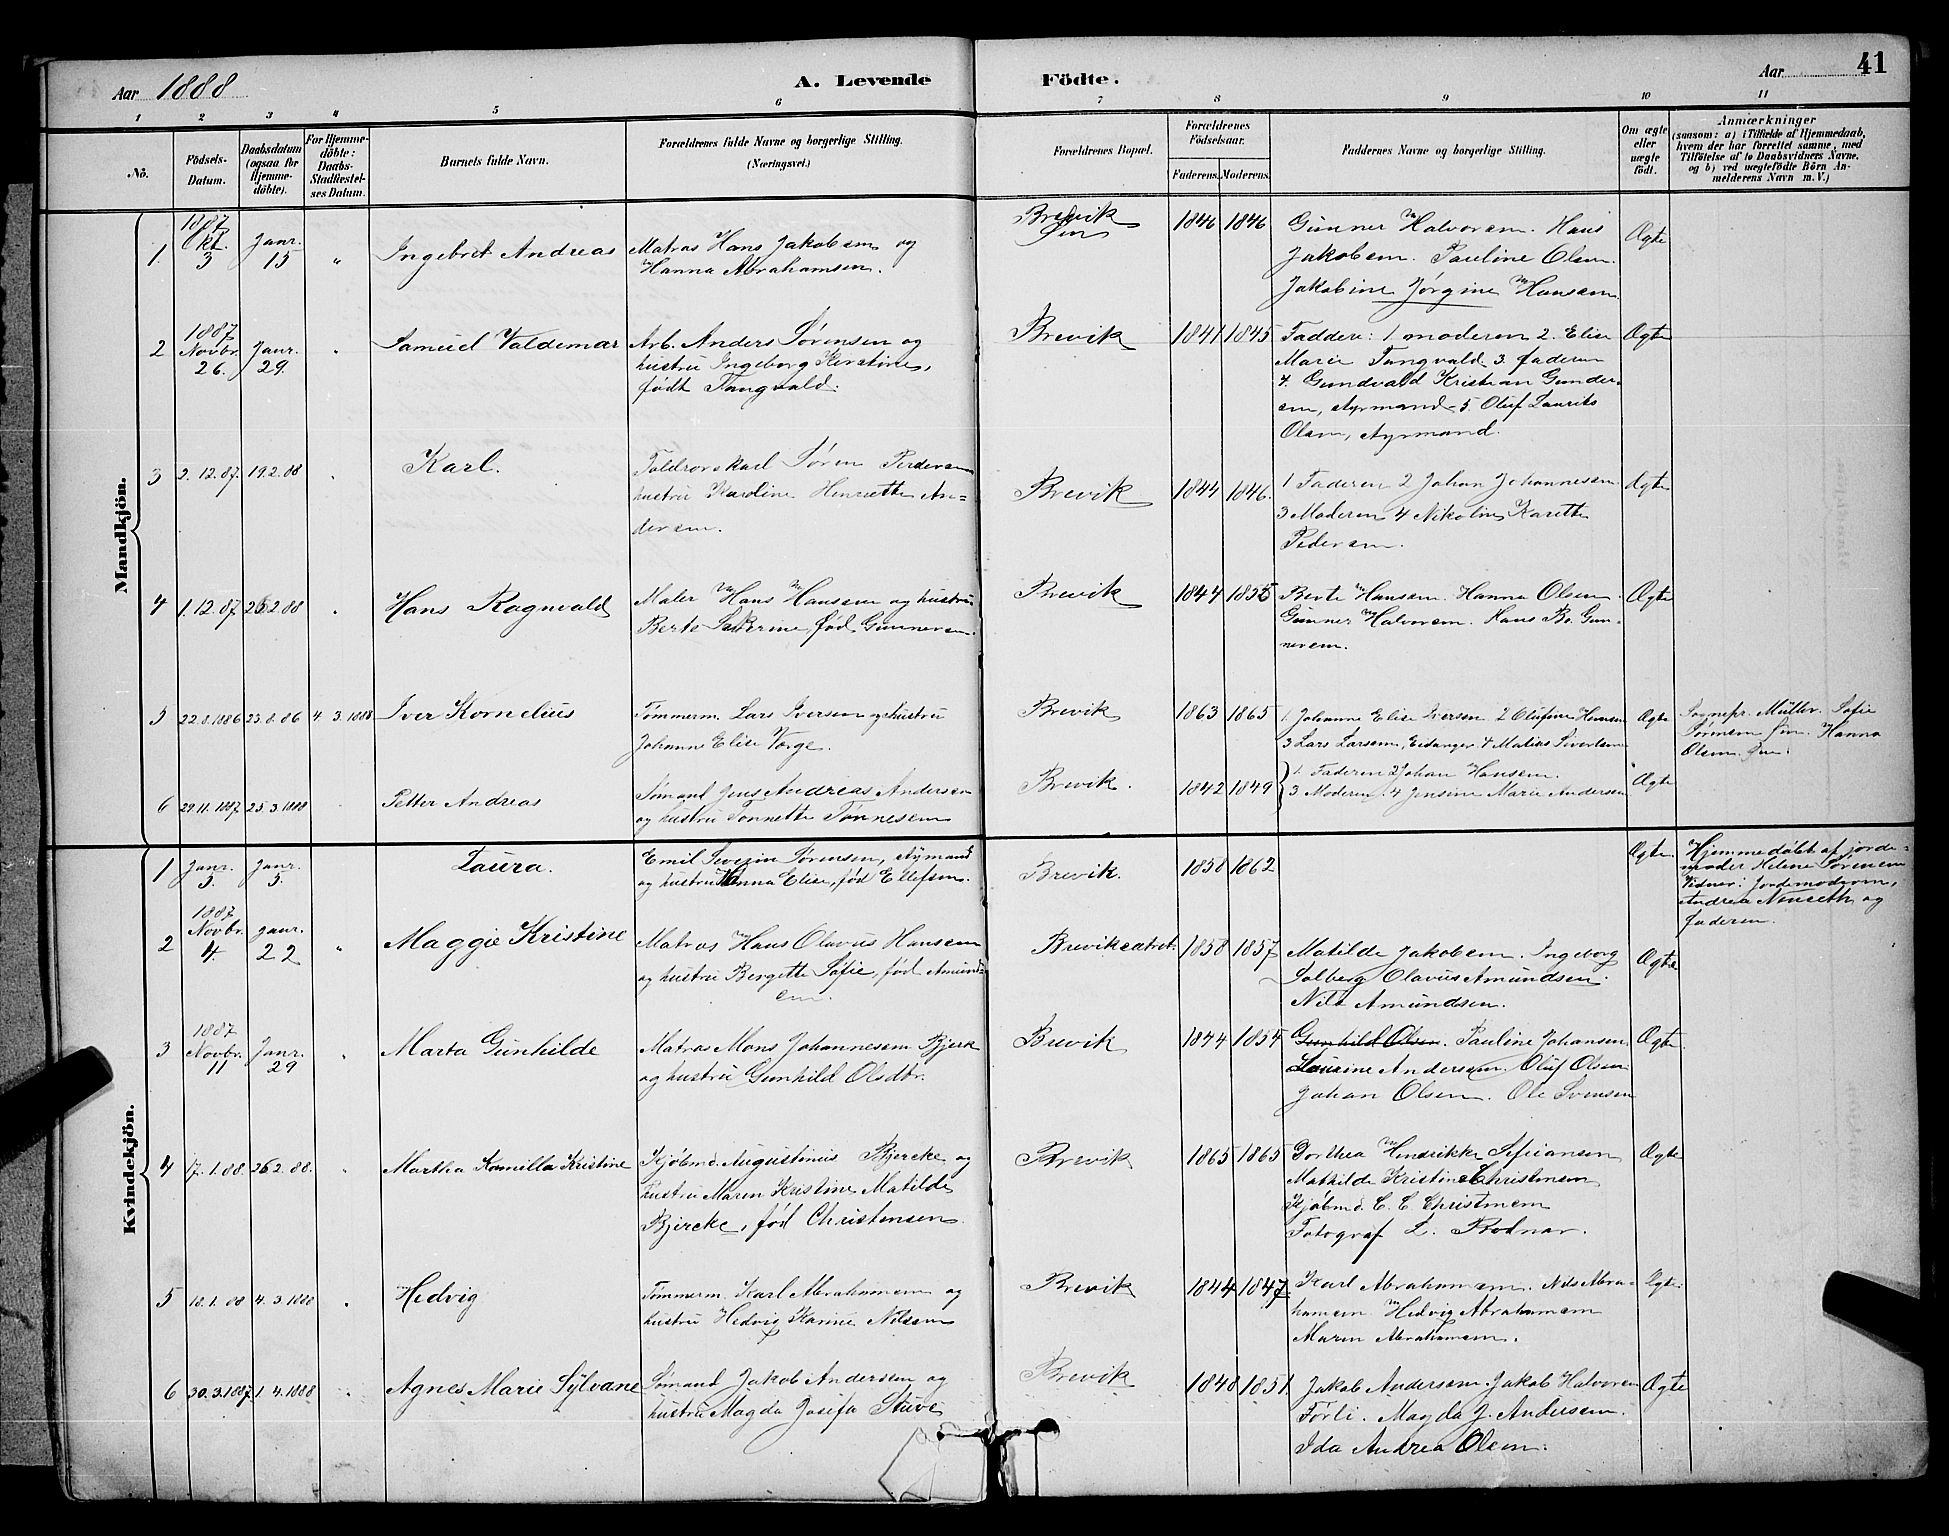 Aar 1888
A. Levende Födte.
Aar
41
1 2 3 4 5 6 7 8 9 10 11
No.
Födsels-Datum.
Daabsdatum (ogsaa for Hjemmedöbte).
For Hjemmedöbte: Daabs-Stadfæstelses Datum.
Barnets fulde Navn.
Forældrenes fulde Navne og borgerlige Stilling. (Næringsvei.)
Forældrenes Bopæl.
Forældrenes Födselsaar.
Faderens. Moderens.
Faddernes Navne og borgerlige Stilling.
Om ægte eller uægte födt.
Anmærkninger
(saasom: a) i Tilfælde af Hjemmedaab, hvem der har forrettet samme, med Tilföielse af to Daabsvidners Navne, og b) ved uægtefödte Börn Anmelderens Navn m. V.)
Mandkjön.
1. 1887 Okt. 3 Janr. 15 „ Ingebret Andreas
Matros Hans Jakobsen og
Hanna Abrahamsen.
Brevik
Øen
1846 1846
Gunner Halvorsen. Hans
Jakobsen. Pauline Olsen.
Jakobine Jørgine Hansen
Ægte
2 1887 Novbr. 26. Janr. 29. „ Samuel Valdemar
Arb. Anders Sørensen og
hustru Ingeborg Kirstine,
født Tangvald.
Brevik 1841 1845
Faddere: 1 moderen 2. Elise
Marie Tangvald 3. faderen
4. Gundvald Kristian Gunder-
sen, styrmand 5. Oluf Laurits
Olsen, styrmand.
Ægte
3 2.12.87. 19.2.88 Karl.
Toldrorskarl Søren Pedersen
hustru Karoline Henriette An-
dersen.
Brevik 1844 1846.
1 Faderen 2 Johan Johannesen
3 Moderen 4 Nikoline Karette
Pedersen.
Ægte
4 1.12.87. 26.2.88 Hans Ragnvald
Maler Hans Hansen og hustru
Berte Severine, fød Gunnersen.
Brevik 1844 1855
Berte Hansen. Hanna Olsen.
Gunner Halvorsen. Hans Bo. Gun-
nersen.
Ægte
5 22.8.1886 23.8.86 4. 3.1888 Iver Kornelius
Tømmerm. Lars Iversen og hustru
Johanne Elise Vorge.
Brevik 1863 1865
1. Johanne Elise Iversen 2 Olufine Hansen
3 Lars Larsen, Eidanger 4 Matias Sivertsen
Ægte
Sognepr. Müller. Sofie
Sørensen Øen. Hanna
Olsen. Øen.
6 29.11.1887 25.3.1888 Petter Andreas
Sømand Jens Andreas Andersen
og hustru Tonnette Tønnesen
Brevik. 1842 1849
1. Faderen 2 Johan Hansen.
3 Moderen 4 Jensine Marie Andersen
Ægte
Kvindekjön.
1 Janr. 3. Janr. 5. Laura.
Emil Severin Sørensen, styrmand
og hustru Hanna Elise, fød Ellefsen.
Brevik. 1858 1862
Ægte.
Hjemmedøbt af jorde-
moder Helene Sørensen
Vidner: Jordemoderen,
Andrea Nenseth og
faderen.
2 1887 Novbr. 4. Janr. 22 „ Maggie Kristine
Matros Hans Olavus Hansen
og hustru Bergette Sofie, fød Amund-
sen.
Brevikstrat. 1858 1857
Matilde Jakobsen. Ingeborg
Solberg Olavus Amundsen.
Nils Amundsen.
Ægte
3 1887 Novbr. 11 Janr. 29 „ Marta Gunhilde
Matros Mons Johannesen Bjerk
og hustru Gunhild Olsdtr.
Brevik 1844 1854
Gunhild Olsen. Pauline Johansen
Laurine Andersen. Oluf Olsen
Johan Olsen. Ole Svensen
Ægte
4 17.1.88. 26.2.88. Martha Kamilla Kristine
Kjøbmd. Augustinus Bjercke og
hustru Maren Kristine Matilde
Bjercke, fød Christensen
Brevik 1865 1865
Dorthea Hendrikke Stefiansen
Mathilde Kristine Christensen
Kjøbmd. C. E. Christensen
Fotograf L. Rodnar.
Ægte
5 18.1.88 4.3.1888 Hedvig
Tømmerm. Karl Abrahamsen og
hustru Hedvig Karine Nilsen
Brevik 1844 1847
Karl Abrahamsen. Nils Abra-
hamsen. Hedvig Abrahamsen
Maren Abrahamsen.
Ægte
6 30.3.1887. 1.4.1888 Agnes Marie Sylvane
Sømand Jakob Andersen og
hustru Magda Josefa Stuve
Brevik 1848 1851
Jakob Andersen. Jakob Halvorsen
Førli. Magda J. Andersen.
Ida Andrea Olsen.
Ægte